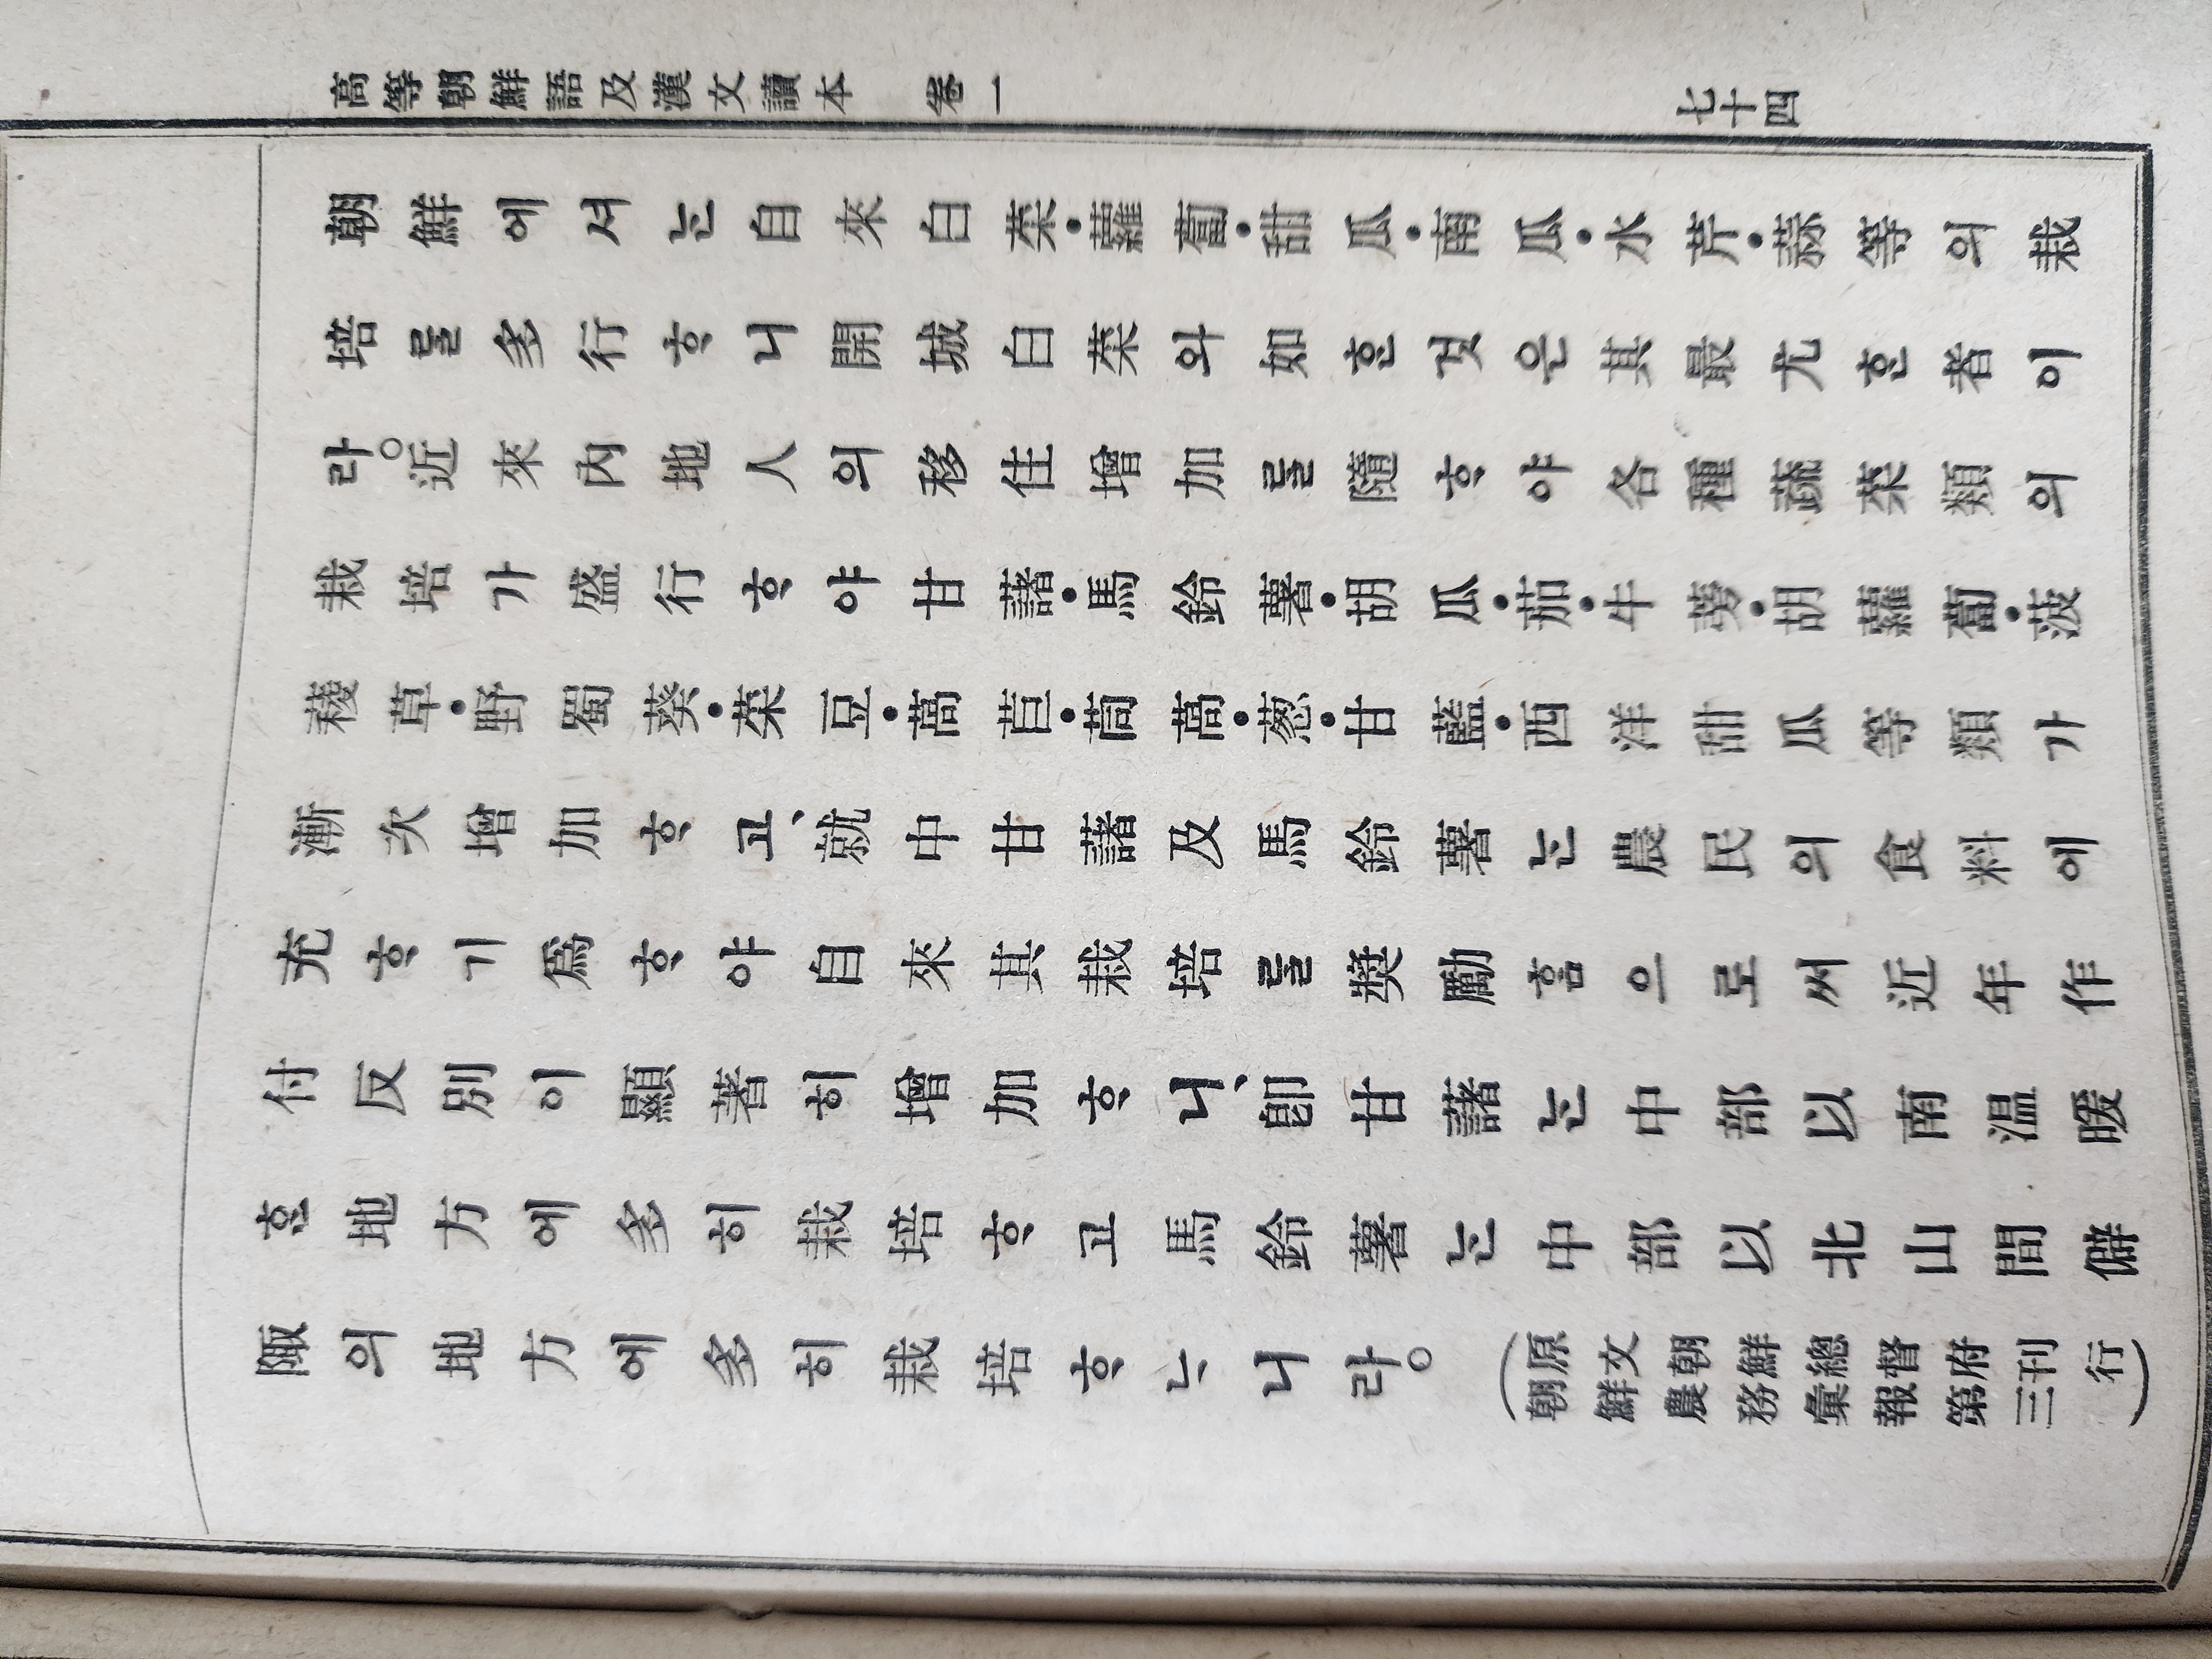 高等朝鮮語及漢文讀本 卷一
七十四
朝鮮에셔ᄂᆞᆫ自來白菜•蘿蔔•甜瓜•南瓜•水芹•蒜等의栽
培ᄅᆞᆯ多行ᄒᆞ니開城白菜와如ᄒᆞᆫ것은其最尤ᄒᆞᆫ者이
라。近來內地人의移住增加ᄅᆞᆯ隨ᄒᆞ야各種蔬菜類의
栽培가盛行ᄒᆞ야甘藷•馬鈴薯•胡瓜•茄•牛蒡•胡蘿蔔•菠
薐草•野蜀葵•菜豆•萵苣•茼蒿•葱•甘藍•西洋甜瓜等類가
漸次增加ᄒᆞ고、就中甘藷及馬鈴薯ᄂᆞᆫ農民의食料에
充ᄒᆞ기爲ᄒᆞ야自來其栽培ᄅᆞᆯ奬勵ᄒᆞᆷ으로써近年作
付反別이顯著히增加ᄒᆞ니、卽甘藷ᄂᆞᆫ中部以南温暖
ᄒᆞᆫ地方에多히栽培ᄒᆞ고馬鈴薯ᄂᆞᆫ中部以北山間僻
陬의地方에多히栽培ᄒᆞᄂᆞ니라。
(原文朝鮮總督府刊行
朝鮮農務彙報第三)